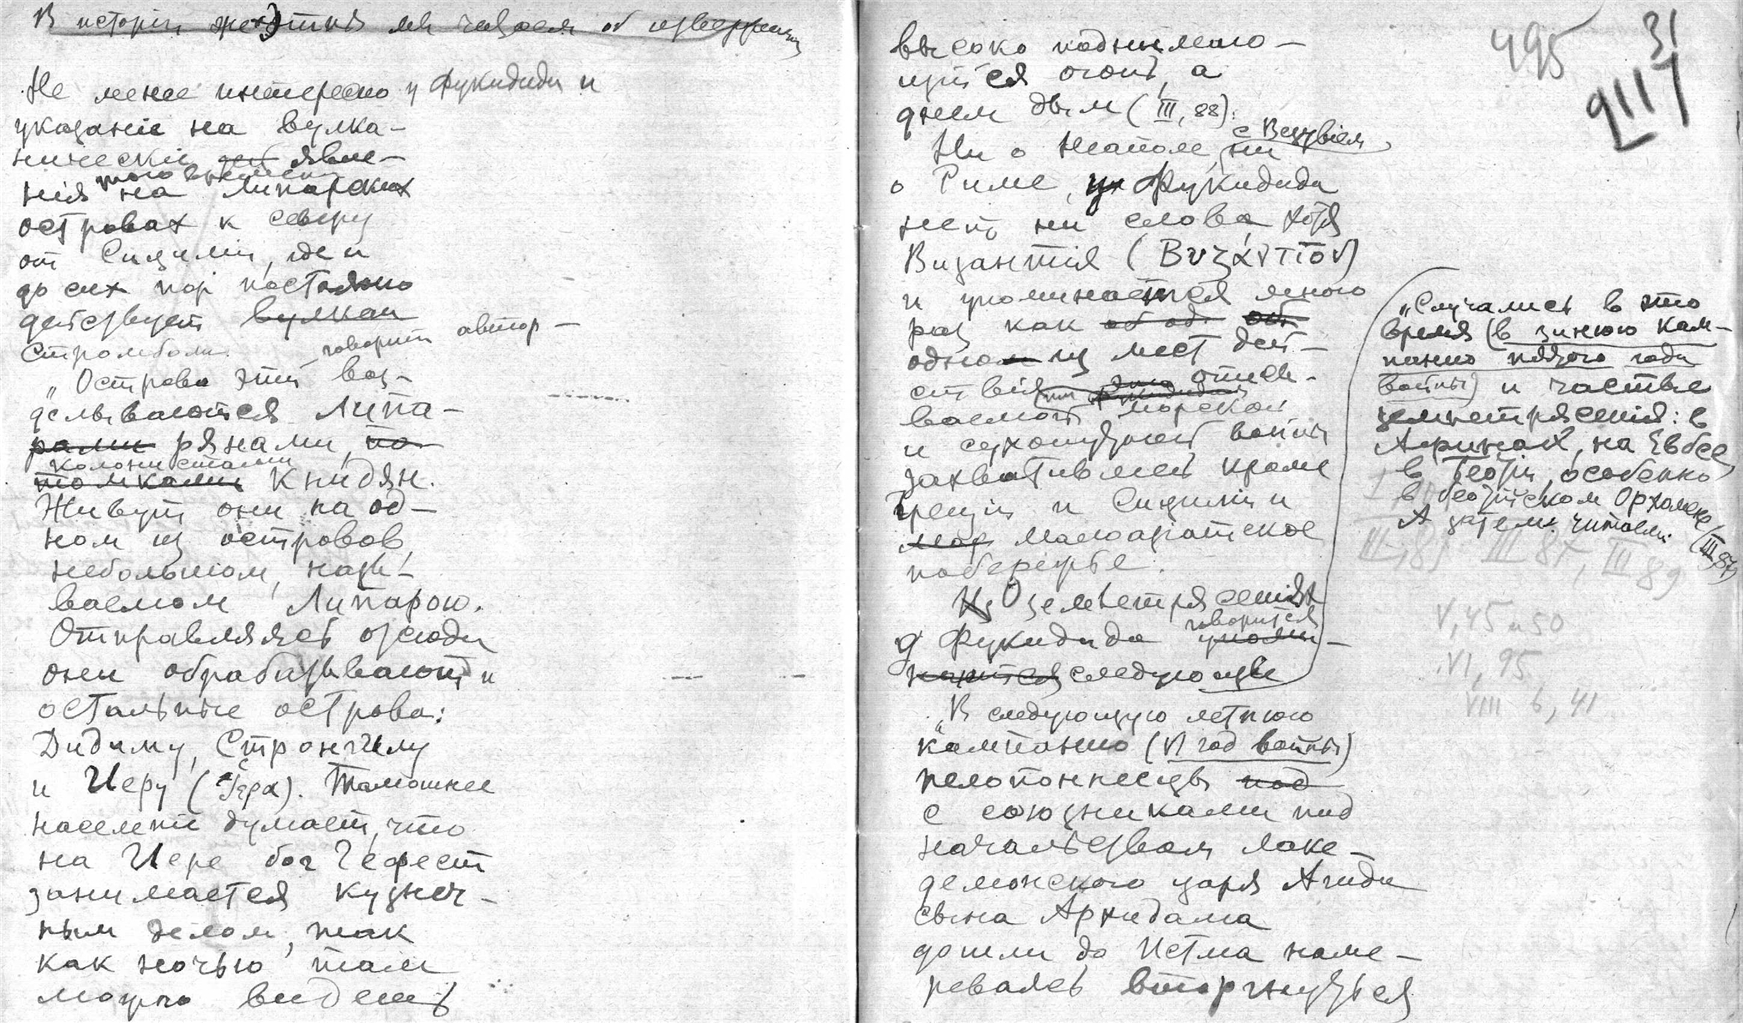 В исторіи же этих мы читаем об извержениях
Не менее интересно у Фукидида и
указаніе на вулка-
ническіе явле-
нія того времени на Липарских
островах к северу
от Сициліи, где и
до сих пор постоянно
действует вулкан
Стромболи. говорит автор —
„Острова эти воз-
делываются Липа-
рами рянами, по-
колонистами
томками Книдян.
Живут они на од-
ном из островов,
небольшом, назы-
ваемом Липарою.
Отправляясь отсюда
они обрабатывают и
остальные острова:
Дидиму, Стронгилу
и Иеру (Ἱερα). Тамошнее
населеніе думает, что
на Иере бог Гефест
занимается кузнеч-
ным делом, так
как ночью там
можно видеть
495 31
9111
высоко поднимаю-
щійся огонь, а
днем дым (III, 88).
Ни о Неаполе с Везувіем, ни
о Риме, у Фукидида
нет ни слова, хотя
Византія (Βυζάντιον)
и упоминается много
раз как об од.
одно из мест дей-
ствія этой описы-
ваемой Фукидидом морской
и сухопутной войны
захватившей кроме
Греціи и Сициліи и
мор малоазіатское
побережье.
Из О землетрясеніях
у Фукидида говорится упоми-
нается следующее
„В следующую летнюю
кампанію (VI год войны)
пелопоннесцы под
с союзниками под
начальством лаке-
демонского царя Агида
сына Архидама
дошли до Истма наме-
реваясь вторгнуться
„Случались в это
время (в зимнюю кам-
панию пятого года
войны) и частые
землетрясенія: в
Афинах, на Евбее,
в Беотіи, особенно
в беотійском Орхомене (III, 87)
А затем читаем:
III, 87 III 87, III 89
V, 45 и 50
VI, 95
VIII 6, 41